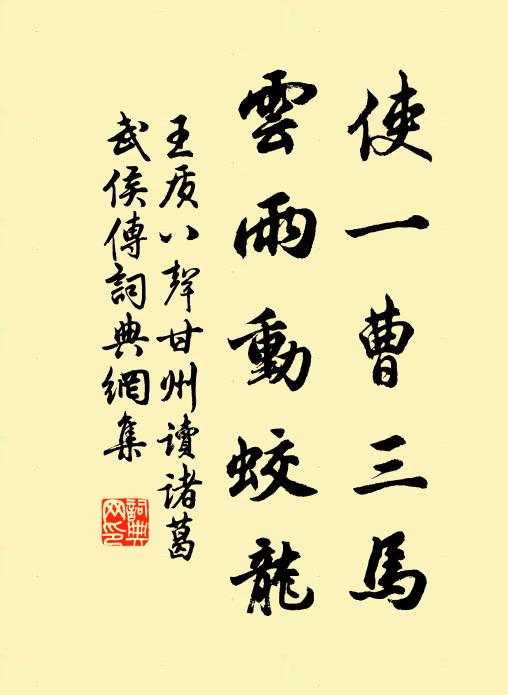 使一曹三馬
雲雨動蛟龍
王质八聲甘州读諸葛
武侯傳詞典網集
詞典
网印